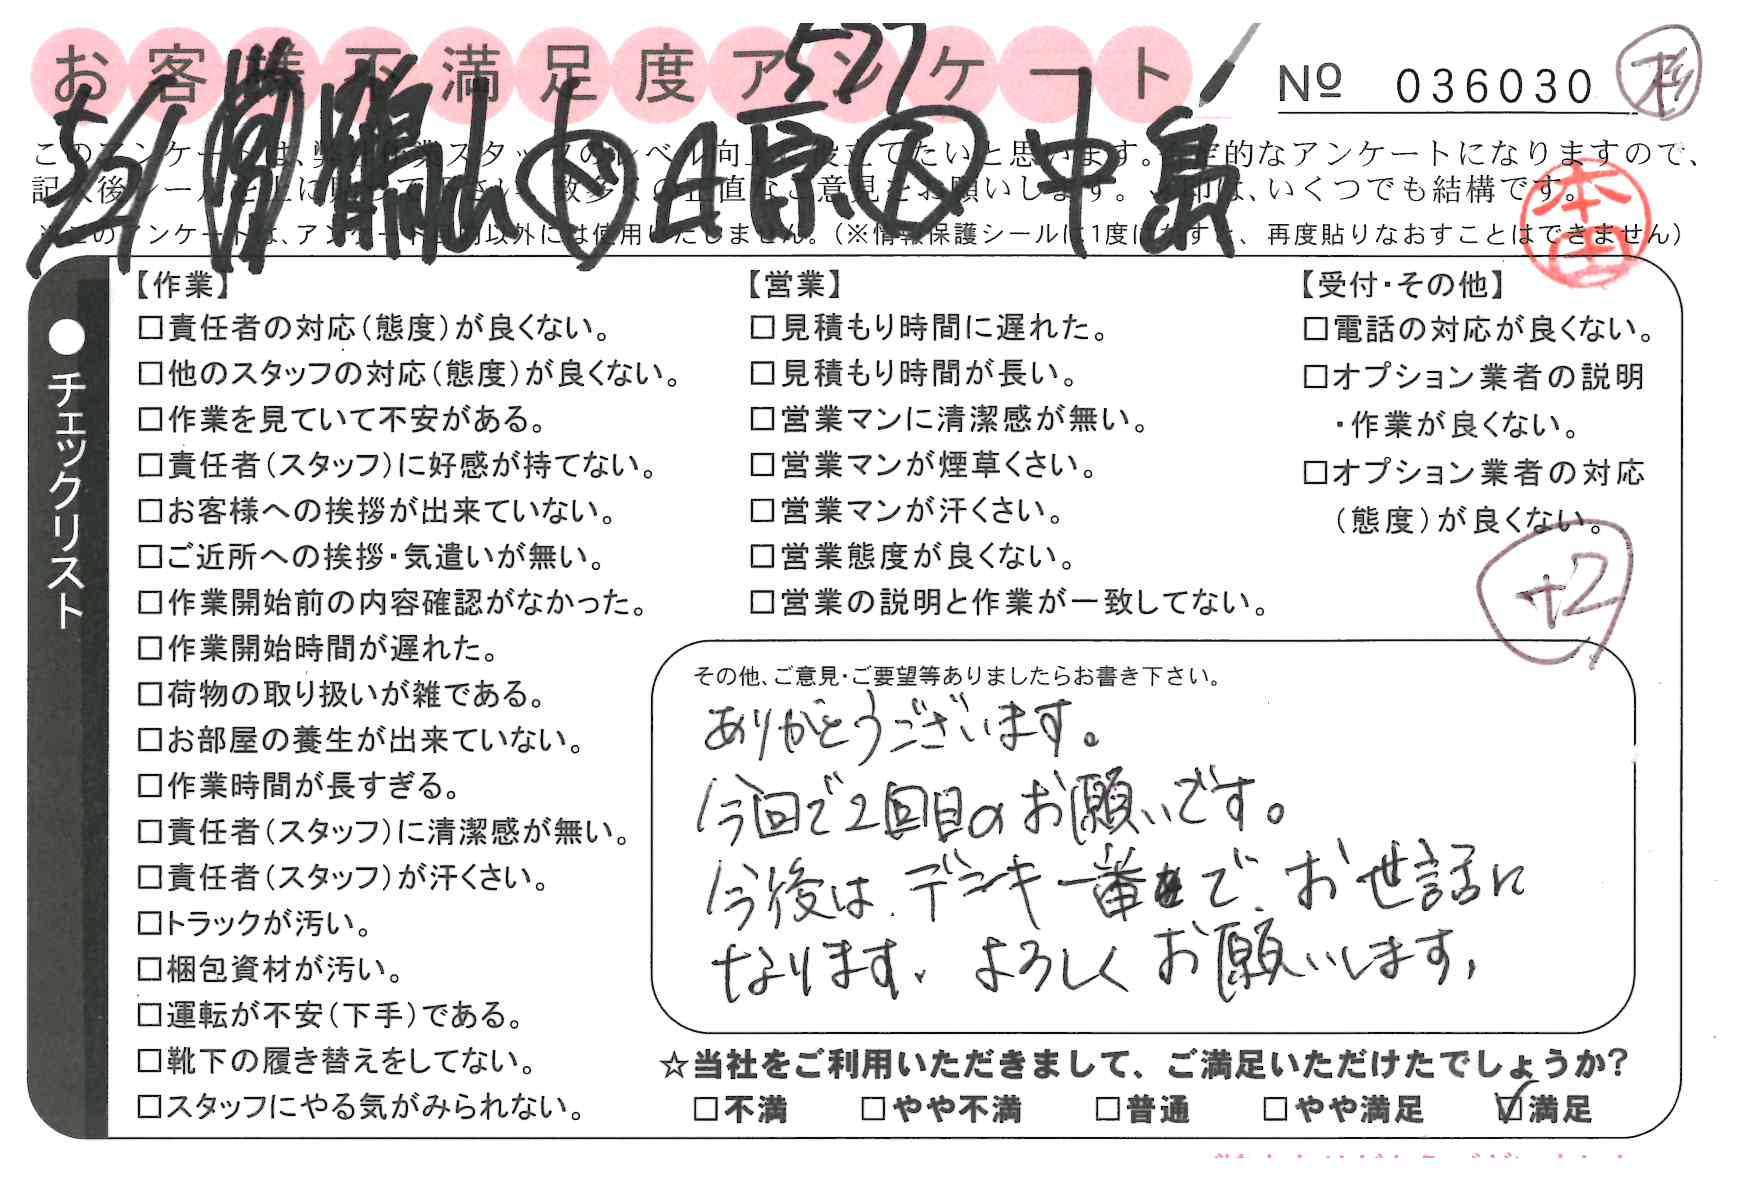 お客様不満足度アンケート
527
Nº 036030
杉
5/21
中島
このアンケートは、弊社作業スタッフのレベル向上に役立てたいと思います。定的なアンケートになりますので、
記入後シールを上に貼って下さい。数多くの正直なご意見をお願いします。レ印は、いくつでも結構です。
※このアンケートは、アンケート目的以外には使用いたしません。（※情報保護シールは1度はがすと、再度貼りなおすことはできません）
本田
●チェックリスト
【作業】
□責任者の対応（態度）が良くない。
□他のスタッフの対応（態度）が良くない。
□作業を見ていて不安がある。
□責任者（スタッフ）に好感が持てない。
□お客様への挨拶が出来ていない。
□ご近所への挨拶・気遣いが無い。
□作業開始前の内容確認がなかった。
□作業開始時間が遅れた。
□荷物の取り扱いが雑である。
□お部屋の養生が出来ていない。
□作業時間が長すぎる。
□責任者（スタッフ）に清潔感が無い。
□責任者（スタッフ）が汗くさい。
□トラックが汚い。
□梱包資材が汚い。
□運転が不安（下手）である。
□靴下の履き替えをしてない。
□スタッフにやる気がみられない。
【営業】
□見積もり時間に遅れた。
□見積もり時間が長い。
□営業マンに清潔感が無い。
□営業マンが煙草くさい。
□営業マンが汗くさい。
□営業態度が良くない。
□営業の説明と作業が一致してない。
【受付・その他】
□電話の対応が良くない。
□オプション業者の説明
・作業が良くない。
□オプション業者の対応
（態度）が良くない。
+2
その他、ご意見・ご要望等ありましたらお書き下さい。
ありがとうございます。
今回で2回目のお願いです。
今後は、デンキ一番で、お世話に
なります、よろしくお願いします、
☆当社をご利用いただきまして、ご満足いただけたでしょうか？
□不満 □やや不満 □普通 □やや満足 ☑満足